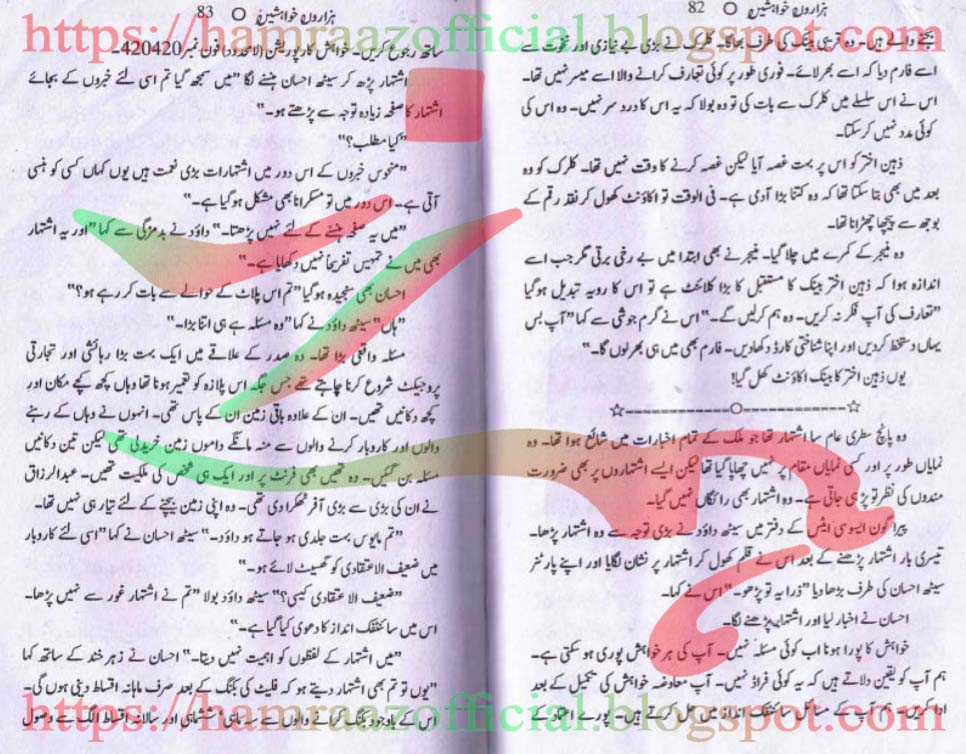 ہزاروں خواہشیں O 82
بجنے والے ہیں۔ وہ قریبی بینک کی طرف بھاگا۔ کلرک نے بڑی بے نیازی اور نخوت سے
اسے فارم دیا کہ اسے بھر لائے۔ فوری طور پر کوئی تعارف کرانے والا اسے میسر نہیں تھا۔
اس نے اس سلسلے میں کلرک سے بات کی تو وہ بولا کہ یہ اس کا درد سر نہیں۔ وہ اس کی
کوئی مدد نہیں کر سکتا۔
ذہین اختر کو اس پر بہت غصہ آیا لیکن غصہ کرنے کا وقت نہیں تھا۔ کلرک کو وہ
بعد میں بھی بتا سکتا تھا کہ وہ کتنا بڑا آدمی ہے۔ فی الوقت تو اکاؤنٹ کھول کر نقد رقم کے
بوجھ سے پیچھا چھڑانا تھا۔
وہ منیجر کے کمرے میں چلا گیا۔ منیجر نے بھی ابتدا میں بے رخی برتی مگر جب اسے
اندازہ ہوا کہ ذہین اختر بینک کا مستقبل کا بڑا کلائنٹ ہے تو اس کا رویہ تبدیل ہوگیا
"تعارف کی آپ فکر نہ کریں۔ وہ ہم کرلیں گے۔" اس نے گرم جوشی سے کہا "آپ بس
یہاں دستخط کردیں اور اپنا شناختی کارڈ دکھا دیں۔ فارم بھی میں ہی بھر لوں گا۔"
یوں ذہین اختر کا بینک اکاؤنٹ کھل گیا!
☆------------O------------☆
وہ پانچ سطری عام سا اشتہار تھا جو ملک کے تمام اخبارات میں شائع ہوا تھا۔ وہ
نمایاں طور پر اور کسی نمایاں مقام پر نہیں چھاپا گیا تھا لیکن ایسے اشتہاروں پر بھی ضرورت
مندوں کی نظر تو پڑ ہی جاتی ہے۔ وہ اشتہار بھی رائگاں نہیں گیا۔
پیراگون ایسوسی ایٹس کے دفتر میں سیٹھ داؤد نے بڑی توجہ سے وہ اشتہار پڑھا۔
تیسری بار اشتہار پڑھنے کے بعد اس نے قلم کھول کر اشتہار پر نشان لگایا اور اپنے پارٹنر
سیٹھ احسان کی طرف بڑھا دیا "ذرا یہ تو پڑھو۔" اس نے کہا۔
احسان نے اخبار لیا اور اشتہار پڑھنے لگا۔
خواہش کا پورا ہونا اب کوئی مسئلہ نہیں۔ آپ کی ہر خواہش پوری ہو سکتی ہے۔
ہم آپ کو یقین دلاتے ہیں کہ یہ کوئی فراڈ نہیں۔ آپ معاوضہ خواہش کی تکمیل کے بعد
ادا کریں۔ ہم آپ کے مسائل سائنٹفک انداز میں حل کرتے ہیں۔ پورے اعتماد کے
ہزاروں خواہشیں O 83
ساتھ رجوع کریں۔ خواہش کارپوریشن (لامحدود) فون نمبر 420420۔
اشتہار پڑھ کر سیٹھ احسان ہنسنے لگا "میں سمجھ گیا تم اسی لئے خبروں کے بجائے
اشتہار کا صفحہ زیادہ توجہ سے پڑھتے ہو۔"
"کیا مطلب؟"
"منحوس خبروں کے اس دور میں اشتہارات بڑی نعمت ہیں یوں کہاں کسی کو ہنسی
آتی ہے۔ اس دور میں تو مسکرانا بھی مشکل ہو گیا ہے۔"
"میں یہ صفحہ ہنسنے کے لئے نہیں پڑھتا۔" داؤد نے بدمزگی سے کہا "اور یہ اشتہار
بھی میں نے تمہیں تفریحاً نہیں دکھایا ہے۔"
احسان بھی سنجیدہ ہو گیا "تم اس پلاٹ کے حوالے سے بات کر رہے ہو؟"
"ہاں" سیٹھ داؤد نے کہا "وہ مسئلہ ہے ہی اتنا بڑا۔"
مسئلہ واقعی بڑا تھا۔ وہ صدر کے علاقے میں ایک بہت بڑا رہائشی اور تجارتی
پروجیکٹ شروع کرنا چاہتے تھے جس جگہ اس پلازہ کو تعمیر ہونا تھا وہاں کچھ کچے مکان اور
کچھ دکانیں تھیں۔ ان کے علاوہ باقی زمین ان کے پاس تھی۔ انہوں نے وہاں کے رہنے
والوں اور کاروبار کرنے والوں سے منہ مانگے داموں زمین خریدلی تھی لیکن تین دکانیں
مسئلہ بن گئیں۔ وہ تھیں بھی فرنٹ پر اور ایک ہی شخص کی ملکیت تھیں۔ عبدالرزاق
نے ان کی بڑی سے بڑی آفر ٹھکرا دی تھی۔ وہ اپنی زمین بیچنے کے لئے تیار ہی نہیں تھا۔
"تم مایوس بہت جلدی ہو جاتے ہو داؤد۔" سیٹھ احسان نے کہا "اسی لئے کاروبار
میں ضعیف الاعتقادی کو گھسیٹ لائے ہو۔"
"ضعیف الاعتقادی کیسی؟" سیٹھ داؤد بولا "تم نے اشتہار غور سے نہیں پڑھا۔
اس میں سائنٹفک انداز کا دعویٰ کیا گیا ہے۔"
"میں اشتہار کے لفظوں کو اہمیت نہیں دیتا۔" احسان نے زہر خند کے ساتھ کہا
"یوں تو تم بھی اشتہار دیتے ہو کہ فلیٹ کی بکنگ کے بعد صرف ماہانہ اقساط دینی ہوں گی۔
اس کے باوجود بکنگ کرانے والوں سے سہ ماہی، ششماہی اور سالانہ اقساط الگ سے وصول
https://hamraazofficial.blogspot.com
https://hamraazofficial.blogspot.com